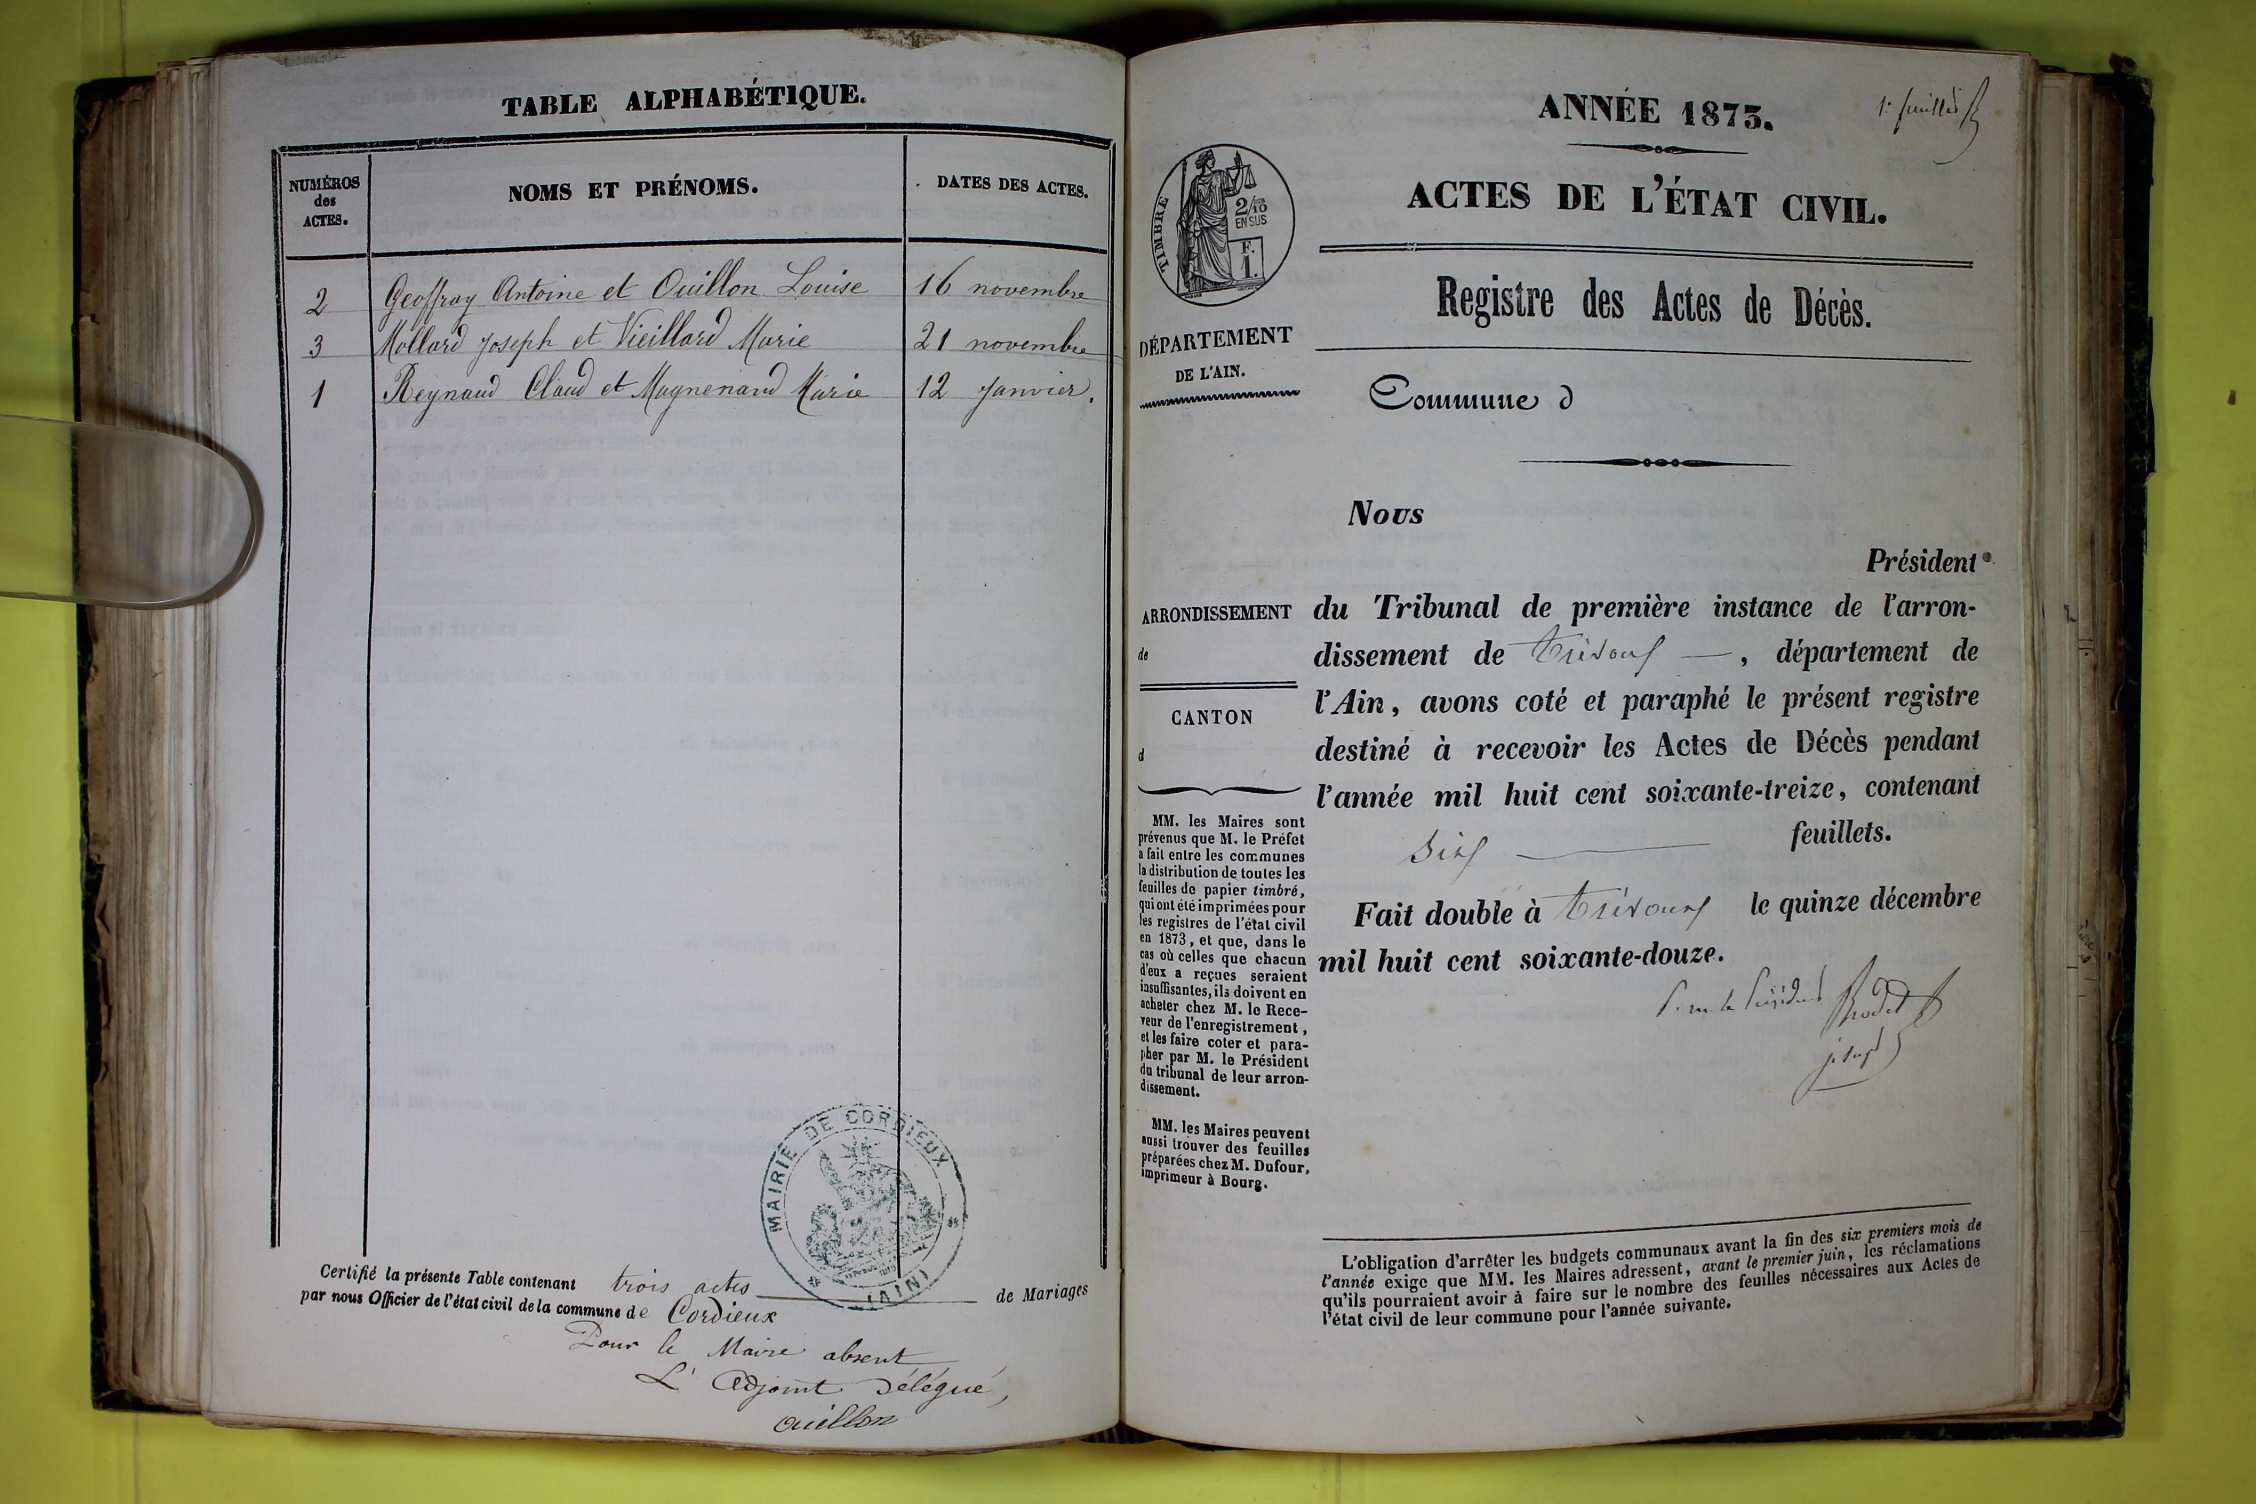 TABLE ALPHABÉTIQUE.
NUMÉROS
des
ACTES.
NOMS ET PRÉNOMS.
DATES DES ACTES.
2 Geoffray Antoine et Ouillon Louise 16 novembre
3 Mollard Joseph et Vieillard Marie 21 novembre
1 Reynaud Claud et Magnenand Marie 12 Janvier.
MAIRIE DE CORDIEUX
(AIN)
Certifié la présente Table contenant trois actes de Mariages
par nous Officier de l'état civil de la commune de Cordieux
Pour le Maire absent
L'Adjoint Délégué,
Ouillon
ANNÉE 1873.
ACTES DE L'ÉTAT CIVIL.
TIMBRE
2/10
EN SUS
F.
1.
Registre des Actes de Décès.
DÉPARTEMENT
DE L'AIN.
Commune d
Nous
Président
ARRONDISSEMENT
de
CANTON
d
du Tribunal de première instance de l'arron-
dissement de Trévoux, département de
l'Ain, avons coté et paraphé le présent registre
destiné à recevoir les Actes de Décès pendant
l'année mil huit cent soixante-treize, contenant
six feuillets.
Fait double à Trévoux le quinze décembre
mil huit cent soixante-douze.
MM. les Maires sont
prévenus que M. le Préfet
a fait entre les communes
la distribution de toutes les
feuilles de papier timbré,
qui ont été imprimées pour
les registres de l'état civil
en 1873, et que, dans le
cas où celles que chacun
d'eux a reçues seraient
insuffisantes, ils doivent en
acheter chez M. le Rece-
veur de l'enregistrement,
et les faire coter et para-
pher par M. le Président
du tribunal de leur arron-
dissement.
MM. les Maires peuvent
aussi trouver des feuilles
préparées chez M. Dufour,
imprimeur à Bourg.
L'obligation d'arrêter les budgets communaux avant la fin des six premiers mois de
l'année exige que MM. les Maires adressent, avant le premier juin, les réclamations
qu'ils pourraient avoir à faire sur le nombre des feuilles nécessaires aux Actes de
l'état civil de leur commune pour l'année suivante.